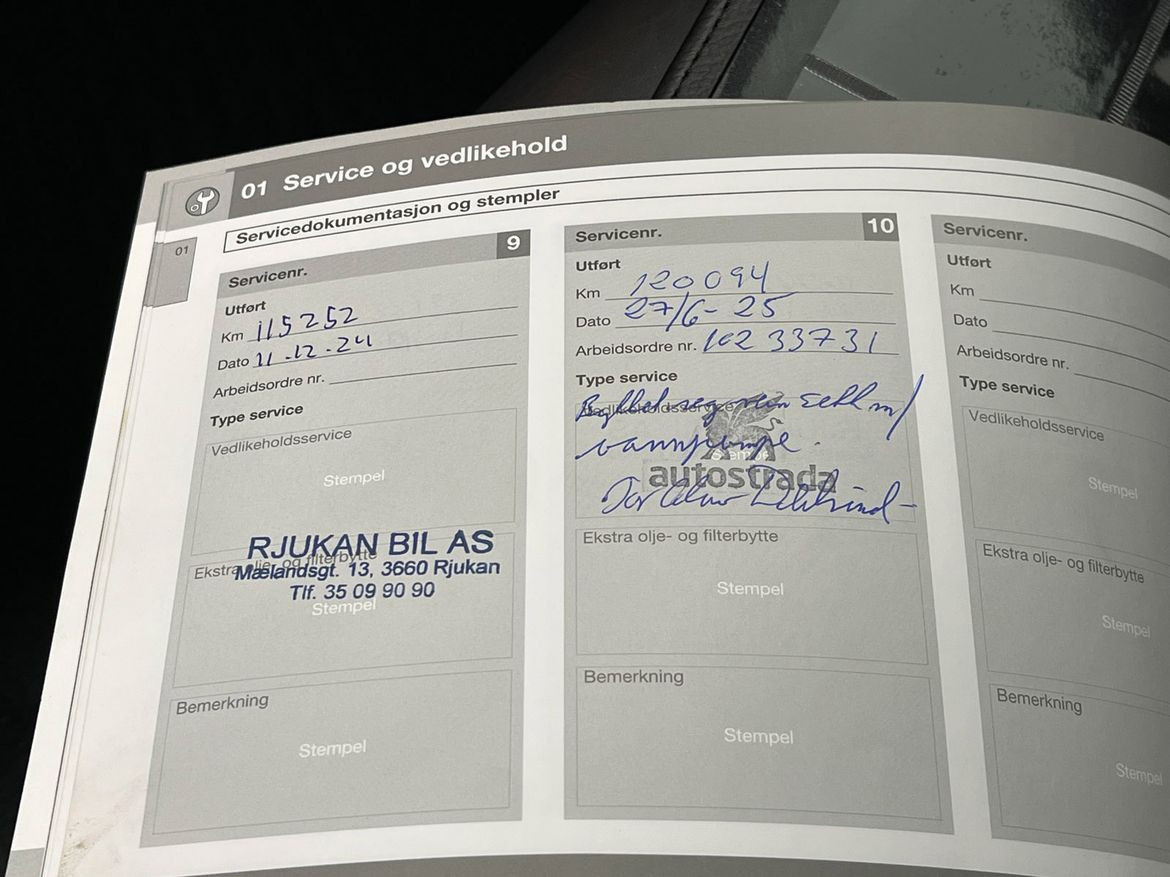 01 Service og vedlikehold
01
Servicedokumentasjon og stempler
Servicenr. 9
Utført
Km 115252
Dato 11.12.24
Arbeidsordre nr.
Type service
Vedlikeholdsservice
Stempel
RJUKAN BIL AS
Ekstra olje- og filterbytte
Mælandsgt. 13, 3660 Rjukan
Tlf. 35 09 90 90
Stempel
Bemerkning
Stempel
Servicenr. 10
Utført
Km 120094
Dato 27/6-25
Arbeidsordre nr. 10233731
Type service
Vedlikeholdsservice
Byttet reg reim sett m/
vannpumpe.
Stempel
autostrada
Tor
Ekstra olje- og filterbytte
Stempel
Bemerkning
Stempel
Servicenr.
Utført
Km
Dato
Arbeidsordre nr.
Type service
Vedlikeholdsservice
Stempel
Ekstra olje- og filterbytte
Stempel
Bemerkning
Stempel